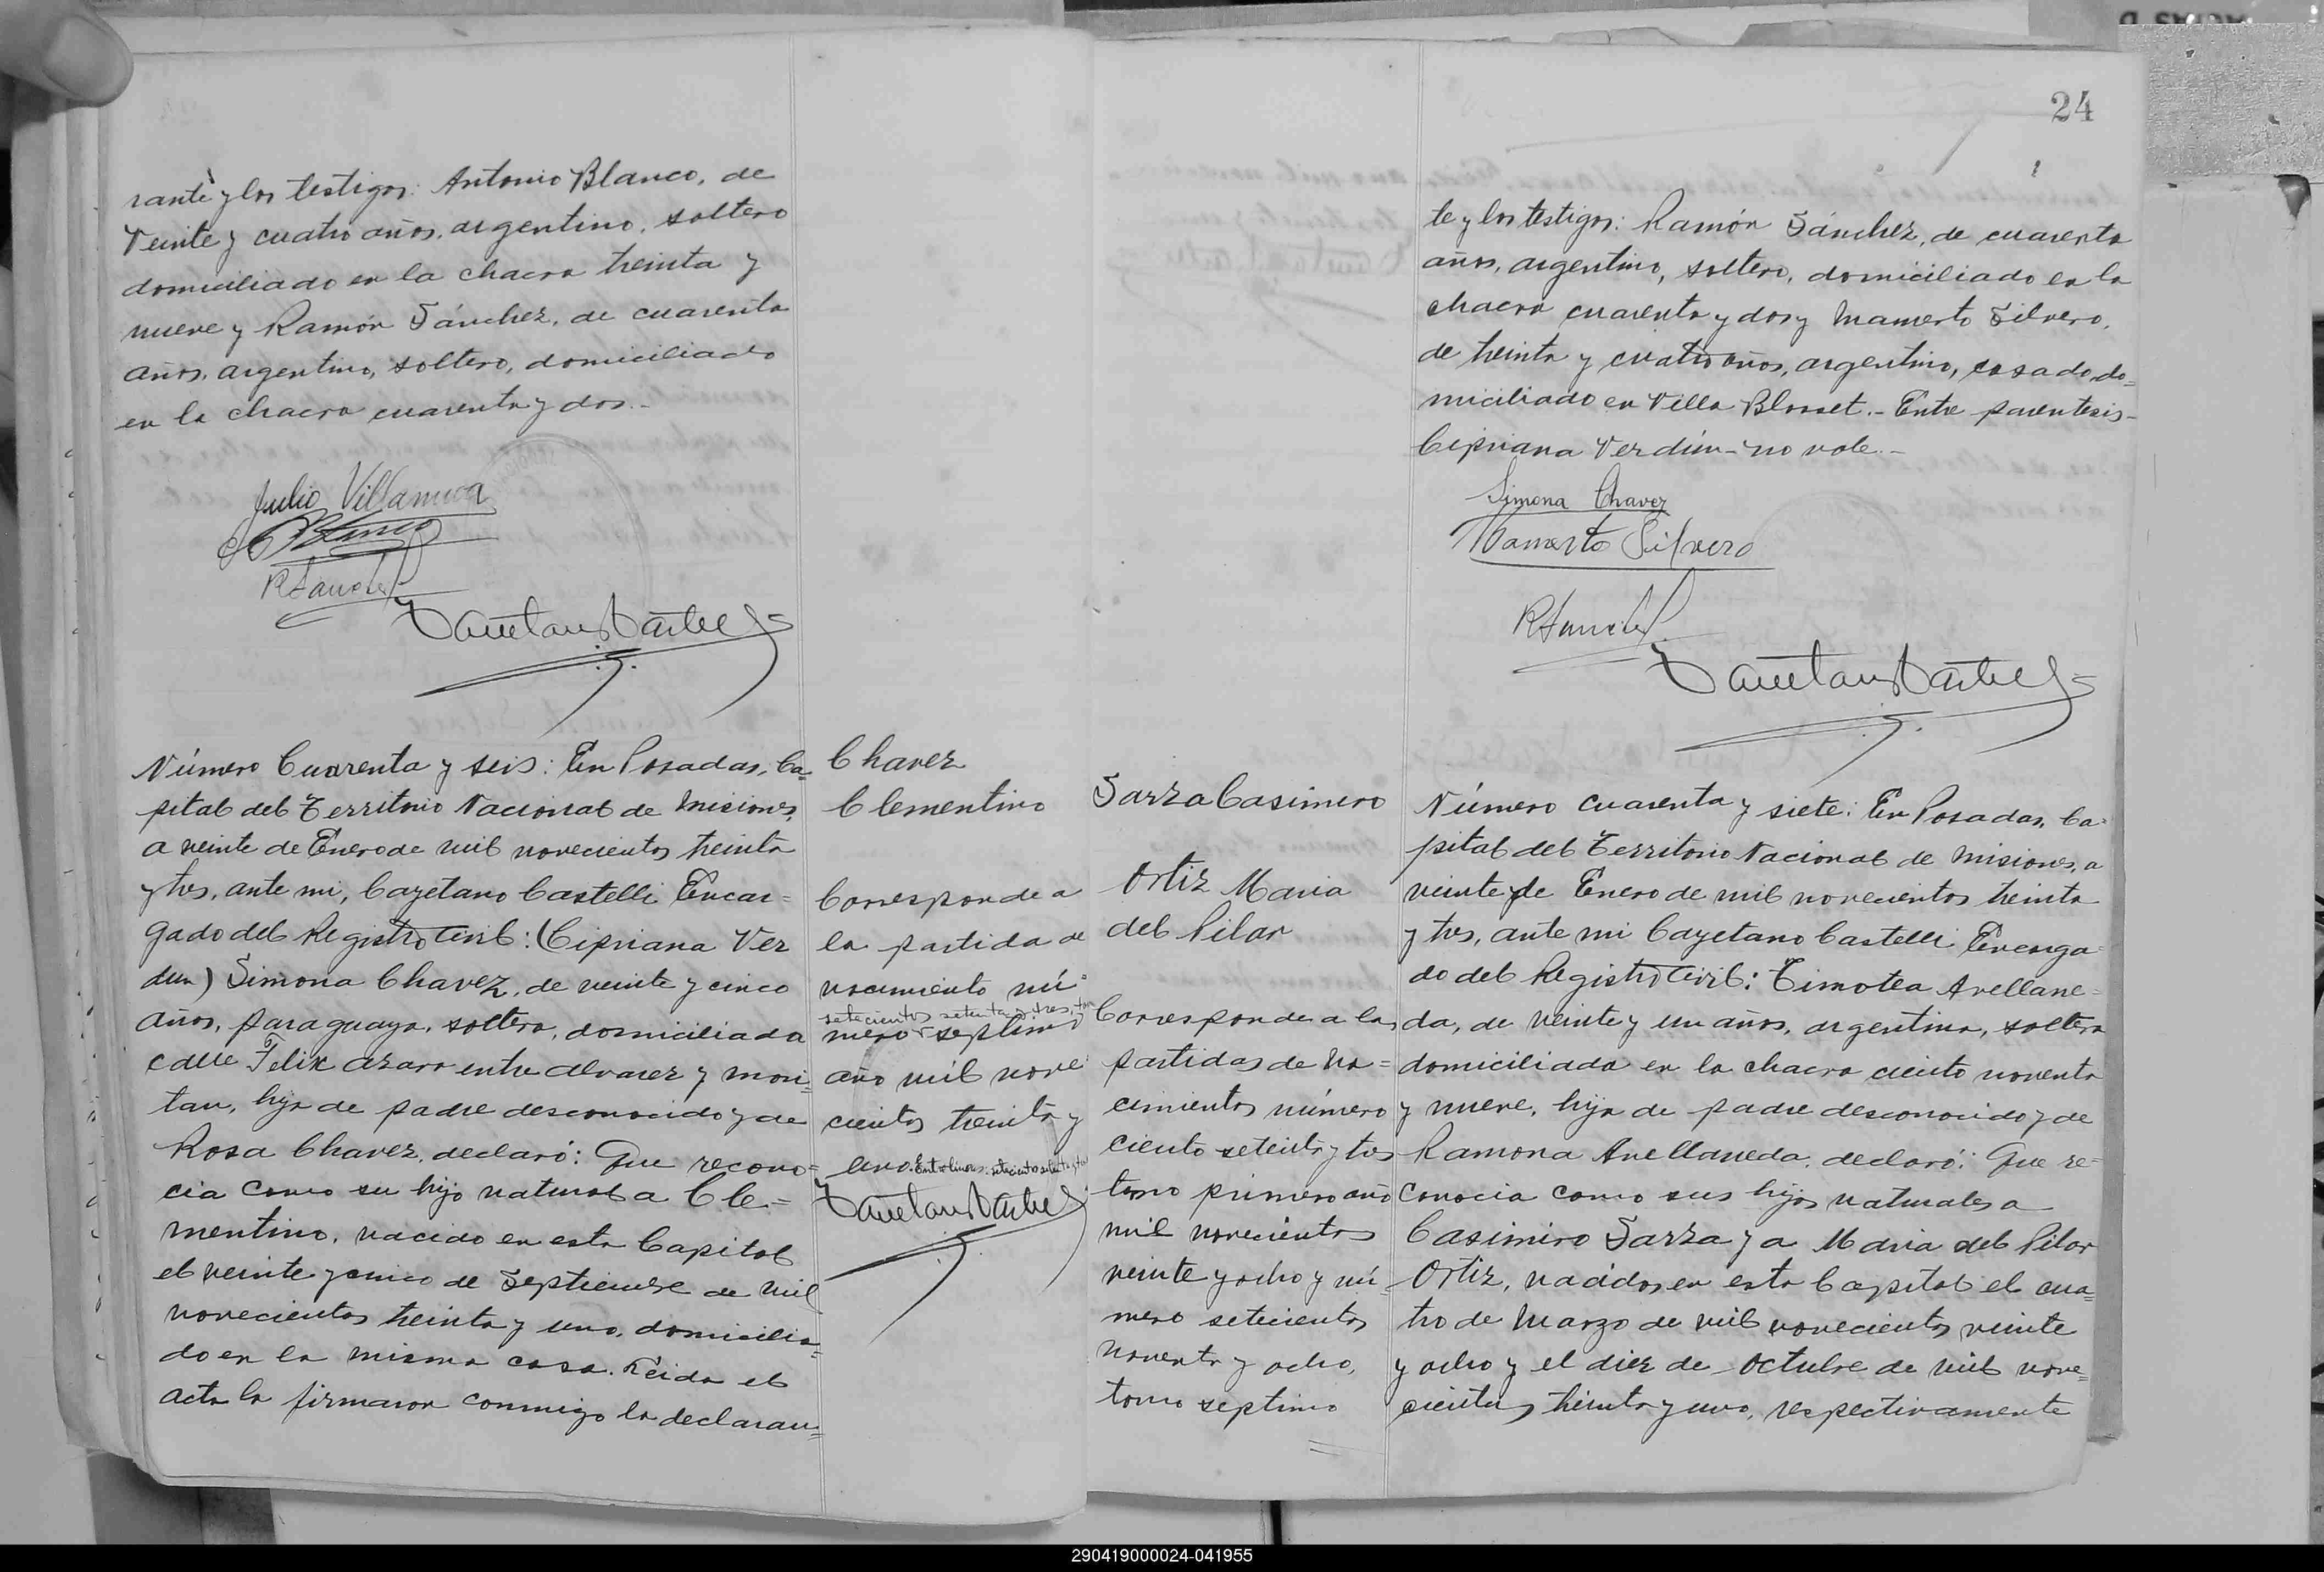 rante y los testigos: Antonio Blanco, de
veinte y cuatro años, argentino, soltero
domiciliado en la chacra treinta y
nueve y Ramón Sánchez, de cuarenta
años, argentino, soltero, domiciliado
en la chacra cuarenta y dos.-
Julio Villanueva
R Sanchez
Número Cuarenta y seis: En Posadas, Ca=
pital del Territorio Nacional de Misiones,
a veinte de Enero de mil novecientos treinta
y tres, ante mi, Cayetano Castelli Encar=
gado del Registro Civil: (Cipriana Ver
dun) Simona Chavez, de veinte y cinco
años, paraguaya, soltera, domiciliada
calle Felix azara entre alvarez y
tan, hija de padre desconocido y de
Rosa Chavez, declaró: Que recono=
cia como su hijo natural a Cle=
mentino, nacido en esta Capital
el veinte y cinco de Septiembre de mil
novecientos treinta y uno, domicilia=
do en la misma casa. Leida el
acta la firmaron conmigo la declaran=
Chavez
Clementino
Corresponde a
la partida de
nacimiento nú=
setecientos setenta y tres, tomo
mero septimo
año mil nove
cientos treinta y
uno. Entrelineas: setecientos setenta y tres
24
te y los testigos: Ramón Sánchez, de cuarenta
años, argentino, soltero, domiciliado en la
chacra cuarenta y dos y Mamerto Silvero,
de treinta y cuatro años, argentino, casado, do=
miciliado en Villa Blosset.- Entre parentesis-
Cipriana Verdún- no vale.-
Simona Chavez
Mamerto Silvero
R Sanchez
Sarza Casimero
Ortiz Maria
del Pilar
Corresponde a las
partidas de na=
cimientos número
ciento setenta y tres
tomo primero año
mil novecientos
veinte y ocho y nú-
mero setecientos
noventa y ocho,
tomo septimo
Número cuarenta y siete: En Posadas, Ca=
pital del Territorio Nacional de Misiones, a
veinte de Enero de mil novecientos treinta
y tres, ante mi Cayetano Castelli Encarga=
do del Registro Civil: Timotea Avellane=
da, de veinte y un años, argentina, soltera
domiciliada en la chacra ciento noventa
y nueve, hija de padre desconocido y de
Ramona Avellaneda, declaró: Que re=
conocia como sus hijos naturales a
Casimiro Sarza y a Maria del Pilar
Ortiz, nacidos en esta Capital el cua=
tro de Marzo de mil novecientos veinte
y ocho y el diez de Octubre de mil nove=
cientos treinta y uno, respectivamente
290419000024-041955